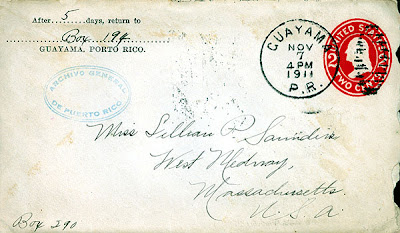 After 5 days, return to
Box 194
GUAYAMA, PORTO RICO.
GUAYAMA
NOV
7
4 PM
1911
P.R.
UNITED STATES
2
TWO CENTS
ARCHIVO GENERAL
DE PUERTO RICO
Miss Lillian P. Saunders
West Medway,
Massachusetts
U.S.A.
Box 290